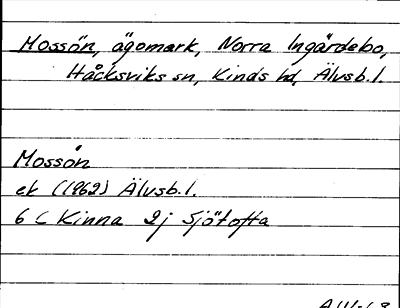 Mossön, ägomark, Norra Ingårdebo,
Håcksviks sn, Kinds hd, Älvsb. l.
Mosson
ek (1962) Älvsb. l.
6 C Kinna 2j Sjötofta